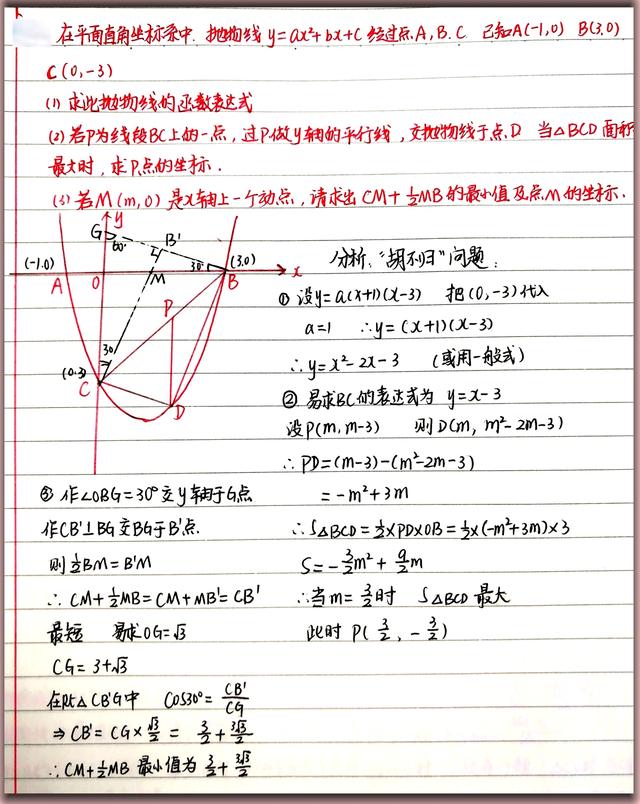 在平面直角坐标系中. 抛物线 y=ax²+bx+c 经过点A,B.C 已知A(-1,0) B(3,0)
C(0,-3)
(1) 求此抛物线的函数表达式
(2) 若P为线段BC上的一点, 过P做y轴的平行线, 交抛物线于点D 当△BCD面积
最大时, 求P点的坐标.
(3) 若M(m,0) 是x轴上一个动点, 请求出 CM+½MB的最小值及点M的坐标.
y
G
60°
B'
(-1.0)
30°
(3.0)
A
O
M
B
x
P
30
(0.3)
C
D
分析: "胡不归"问题:
① 设y=a(x+1)(x-3) 把(0,-3)代入
a=1 ∴y=(x+1)(x-3)
∴y=x²-2x-3 (或用一般式)
② 易求BC的表达式为 y=x-3
设P(m,m-3) 则D(m, m²-2m-3)
∴PD=(m-3)-(m²-2m-3)
=-m²+3m
∴S△BCD=½×PD×OB=½×(-m²+3m)×3
S=-3/2m²+9/2m
∴当m=3/2时 S△BCD最大
此时 P(3/2,-3/2)
③ 作∠OBG=30°交y轴于G点
作CB'⊥BG交BG于B'点.
则½BM=B'M
∴CM+½MB=CM+MB'=CB'
最短 易求OG=√3
CG=3+√3
在Rt△CB'G中 COS30°=CB'/CG
⇒CB'=CG×√3/2=3/2+3√3/2
∴CM+½MB最小值为3/2+3√3/2